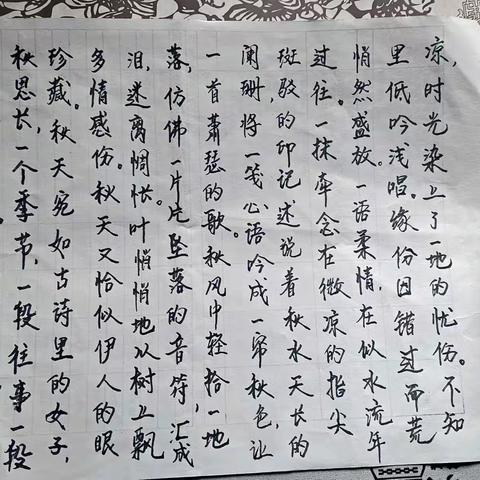 秋思长，一个季节，一段往事一段
珍藏。秋天宛如古诗里的女子，
多情感伤。秋天又恰似伊人的眼
泪，迷离惆怅。叶悄悄地从树上飘
落，仿佛一片片坠落的音符，汇成
一首萧瑟的歌。秋风中轻拾一地
阑珊，将一笺心语吟成一帘秋色，让
斑驳的印记述说着秋水天长的
过往。一抹牵念在微凉的指尖
悄然盛放。一语柔情，在似水流年
里低吟浅唱。缘份因错过而荒
凉，时光染上了一地的忧伤。不知